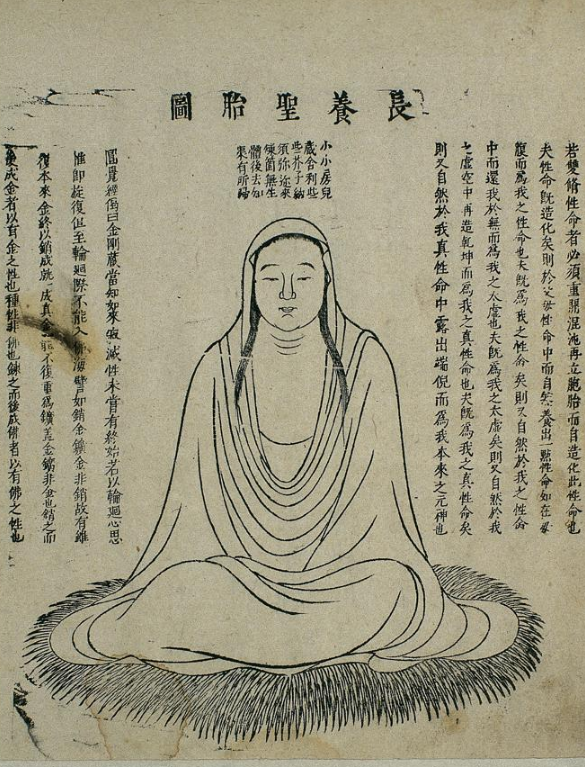 長養聖胎圖
若雙修性命者必須重開混沌再立胞胎而自造化此性命也
夫性命旣造化矣則於父母性命中而自然養出一點性命如在母
腹而爲我之性命也夫旣爲我之性命矣則又自然於我之性命
中而還我於無而爲我之太虛也夫旣爲我之太虛矣則又自然於我
之虛空中再造乾坤而爲我之真性命也夫旣爲我之真性命矣
則又自然於我真性命中露出端倪而爲我本來之元神也
小小房兒
藏舍利些
些芥子納
須弥來
煉箇無生
體後去如
果有所歸
圓覺經偈曰金剛藏當知如來寂滅性未嘗有終始若以輪迴心思
惟即旋復但至輪迴際不能入佛海譬如銷金鑛金非銷故有雖
復本來金終以銷成就一成真金體不復重爲鑛蓋金鑛非金也銷之而
後成金者以有金之性也種性非佛也鍊之而後成佛者以有佛之性也